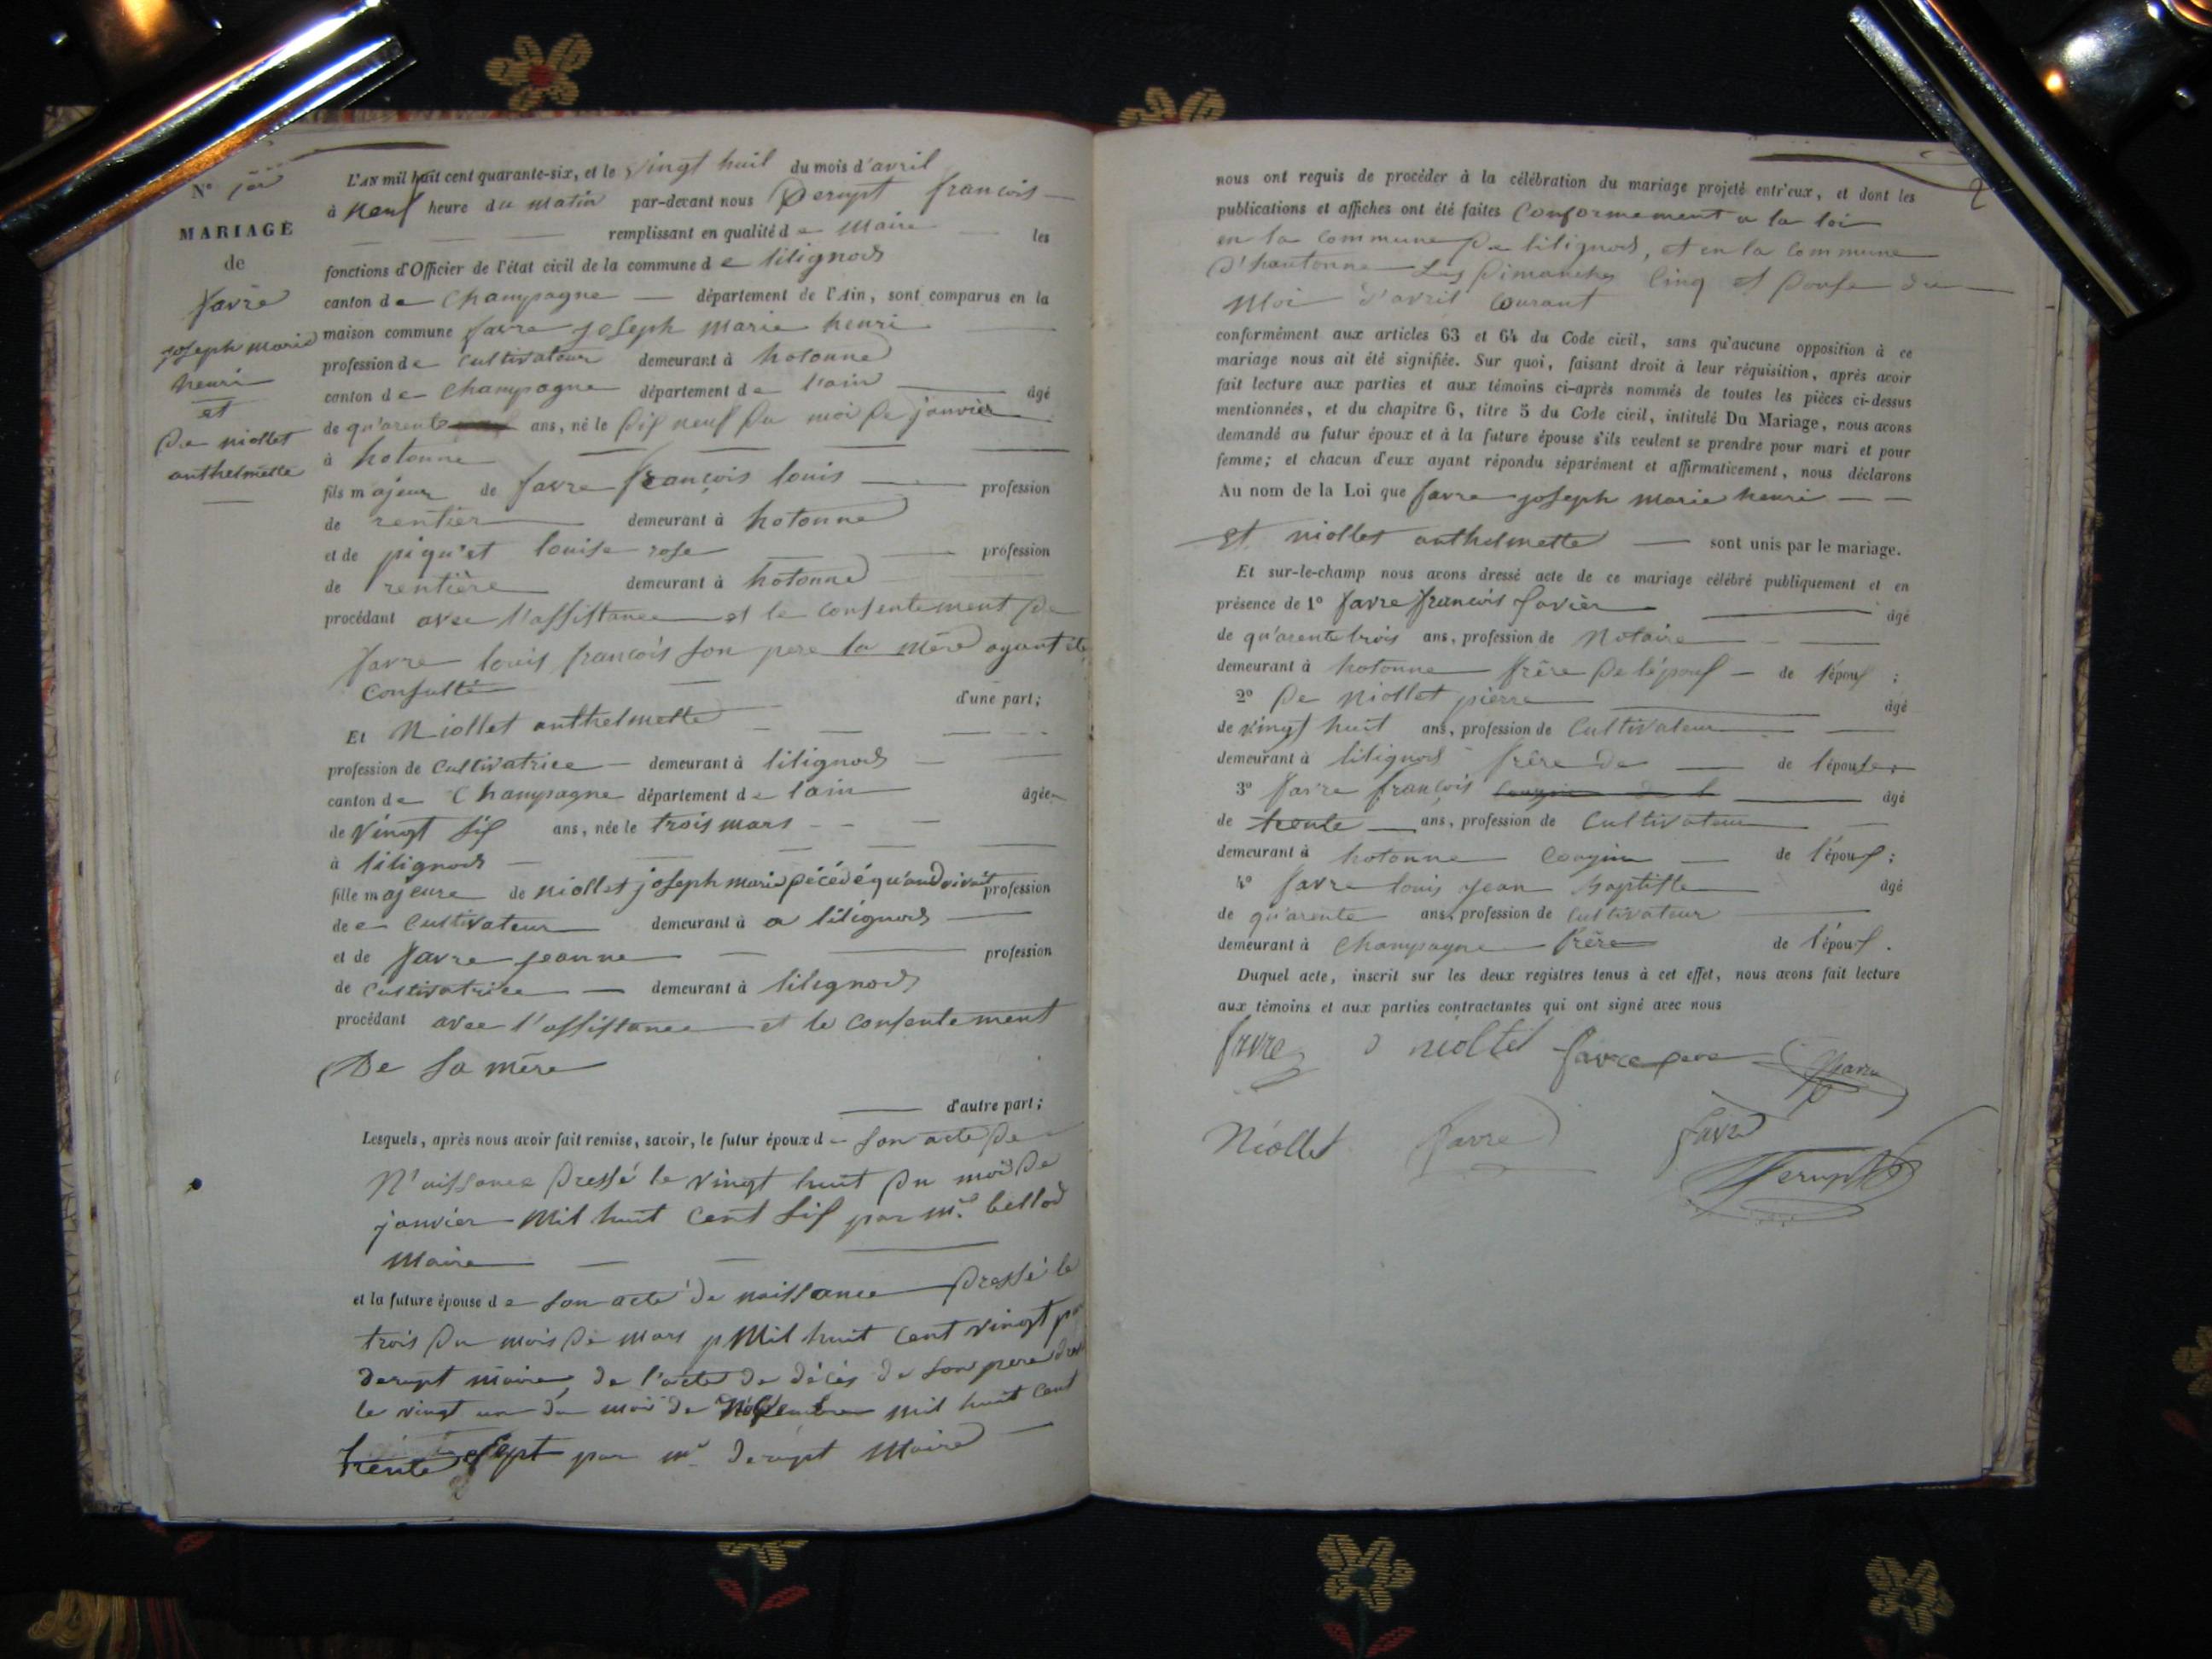 N° 1er
MARIAGE
de
favre
joseph marie
henri
et
De niollet
anthelmette
L'AN mil huit cent quarante-six, et le vingt huit du mois d'avril
à neuf heure du matin par-devant nous Derupt francois
remplissant en qualité de Maire les
fonctions d'Officier de l'état civil de la commune de lilignods
canton de Champagne département de l'Ain, sont comparus en la
maison commune favre joseph marie henri
profession de Cultivateur demeurant à hotonne
canton de Champagne département de l'ain âgé
de qu'arente ans, né le dix neuf du moi de janvier
à hotonne
fils majeur de favre françois louis profession
de rentier demeurant à hotonne
et de piqu'et louise rose profession
de rentière demeurant à hotonne
procédant avec l'assistance et le consentement de
favre louis francois son pere la mere ayant été
consulté d'une part;
Et Niollet anthelmette
profession de Cultivatrice demeurant à lilignods
canton de Champagne département de lain âgée
de vingt six ans, née le trois mars
à lilignods
fille majeure de niollet joseph marie décédé qu'and vivait profession
de Cultivateur demeurant à a lilignods
et de favre jeanne profession
de Cultivatrice demeurant à lilignods
procédant avec l'assistance et le consentement
De sa mère
d'autre part;
Lesquels, après nous avoir fait remise, savoir, le futur époux de son acte de
N'aissance dressé le vingt huit du moi de
janvier Mil huit Cent six par mr bellod
Maire
et la future épouse de son acte de naissance dressé le
trois du mois de mars Mil huit Cent vingt par
derupt maire, de l'acte de décès de son pere
le vingt un du moi de Novembre mil huit Cent
trente sept par mr derupt Maire
2
nous ont requis de procéder à la célébration du mariage projeté entr'eux, et dont les
publications et affiches ont été faites Conformement a la loi
en la commune de lilignods, et en la commune
d'hautonne Les Dimanches Cinq et Douse du
Moi d'avril Courant
conformément aux articles 63 et 64 du Code civil, sans qu'aucune opposition à ce
mariage nous ait été signifiée. Sur quoi, faisant droit à leur réquisition, après avoir
fait lecture aux parties et aux témoins ci-après nommés de toutes les pièces ci-dessus
mentionnées, et du chapitre 6, titre 5 du Code civil, intitulé Du Mariage, nous avons
demandé au futur époux et à la future épouse s'ils veulent se prendre pour mari et pour
femme; et chacun d'eux ayant répondu séparément et affirmativement, nous déclarons
Au nom de la Loi que favre joseph marie henri
et niollet anthelmette sont unis par le mariage.
Et sur-le-champ nous avons dressé acte de ce mariage célébré publiquement et en
présence de 1° favre francois savier âgé
de qu'arente trois ans, profession de Notaire
demeurant à hotonne frère De lépous de l'épous ;
2° De Niollet pierre âgé
de vingt huit ans, profession de Cultivateur
demeurant à lilignods frère de de l'épouse;
3° favre françois âgé
de trente ans, profession de Cultivateur
demeurant à hotonne Cousin de l'épous ;
4° favre louis jean baptiste âgé
de qu'arente ans, profession de Cultivateur
demeurant à Champagne frère de l'épous .
Duquel acte, inscrit sur les deux registres tenus à cet effet, nous avons fait lecture
aux témoins et aux parties contractantes qui ont signé avec nous
favre niollet favre pere favre
Niollet favre favre
Derupt